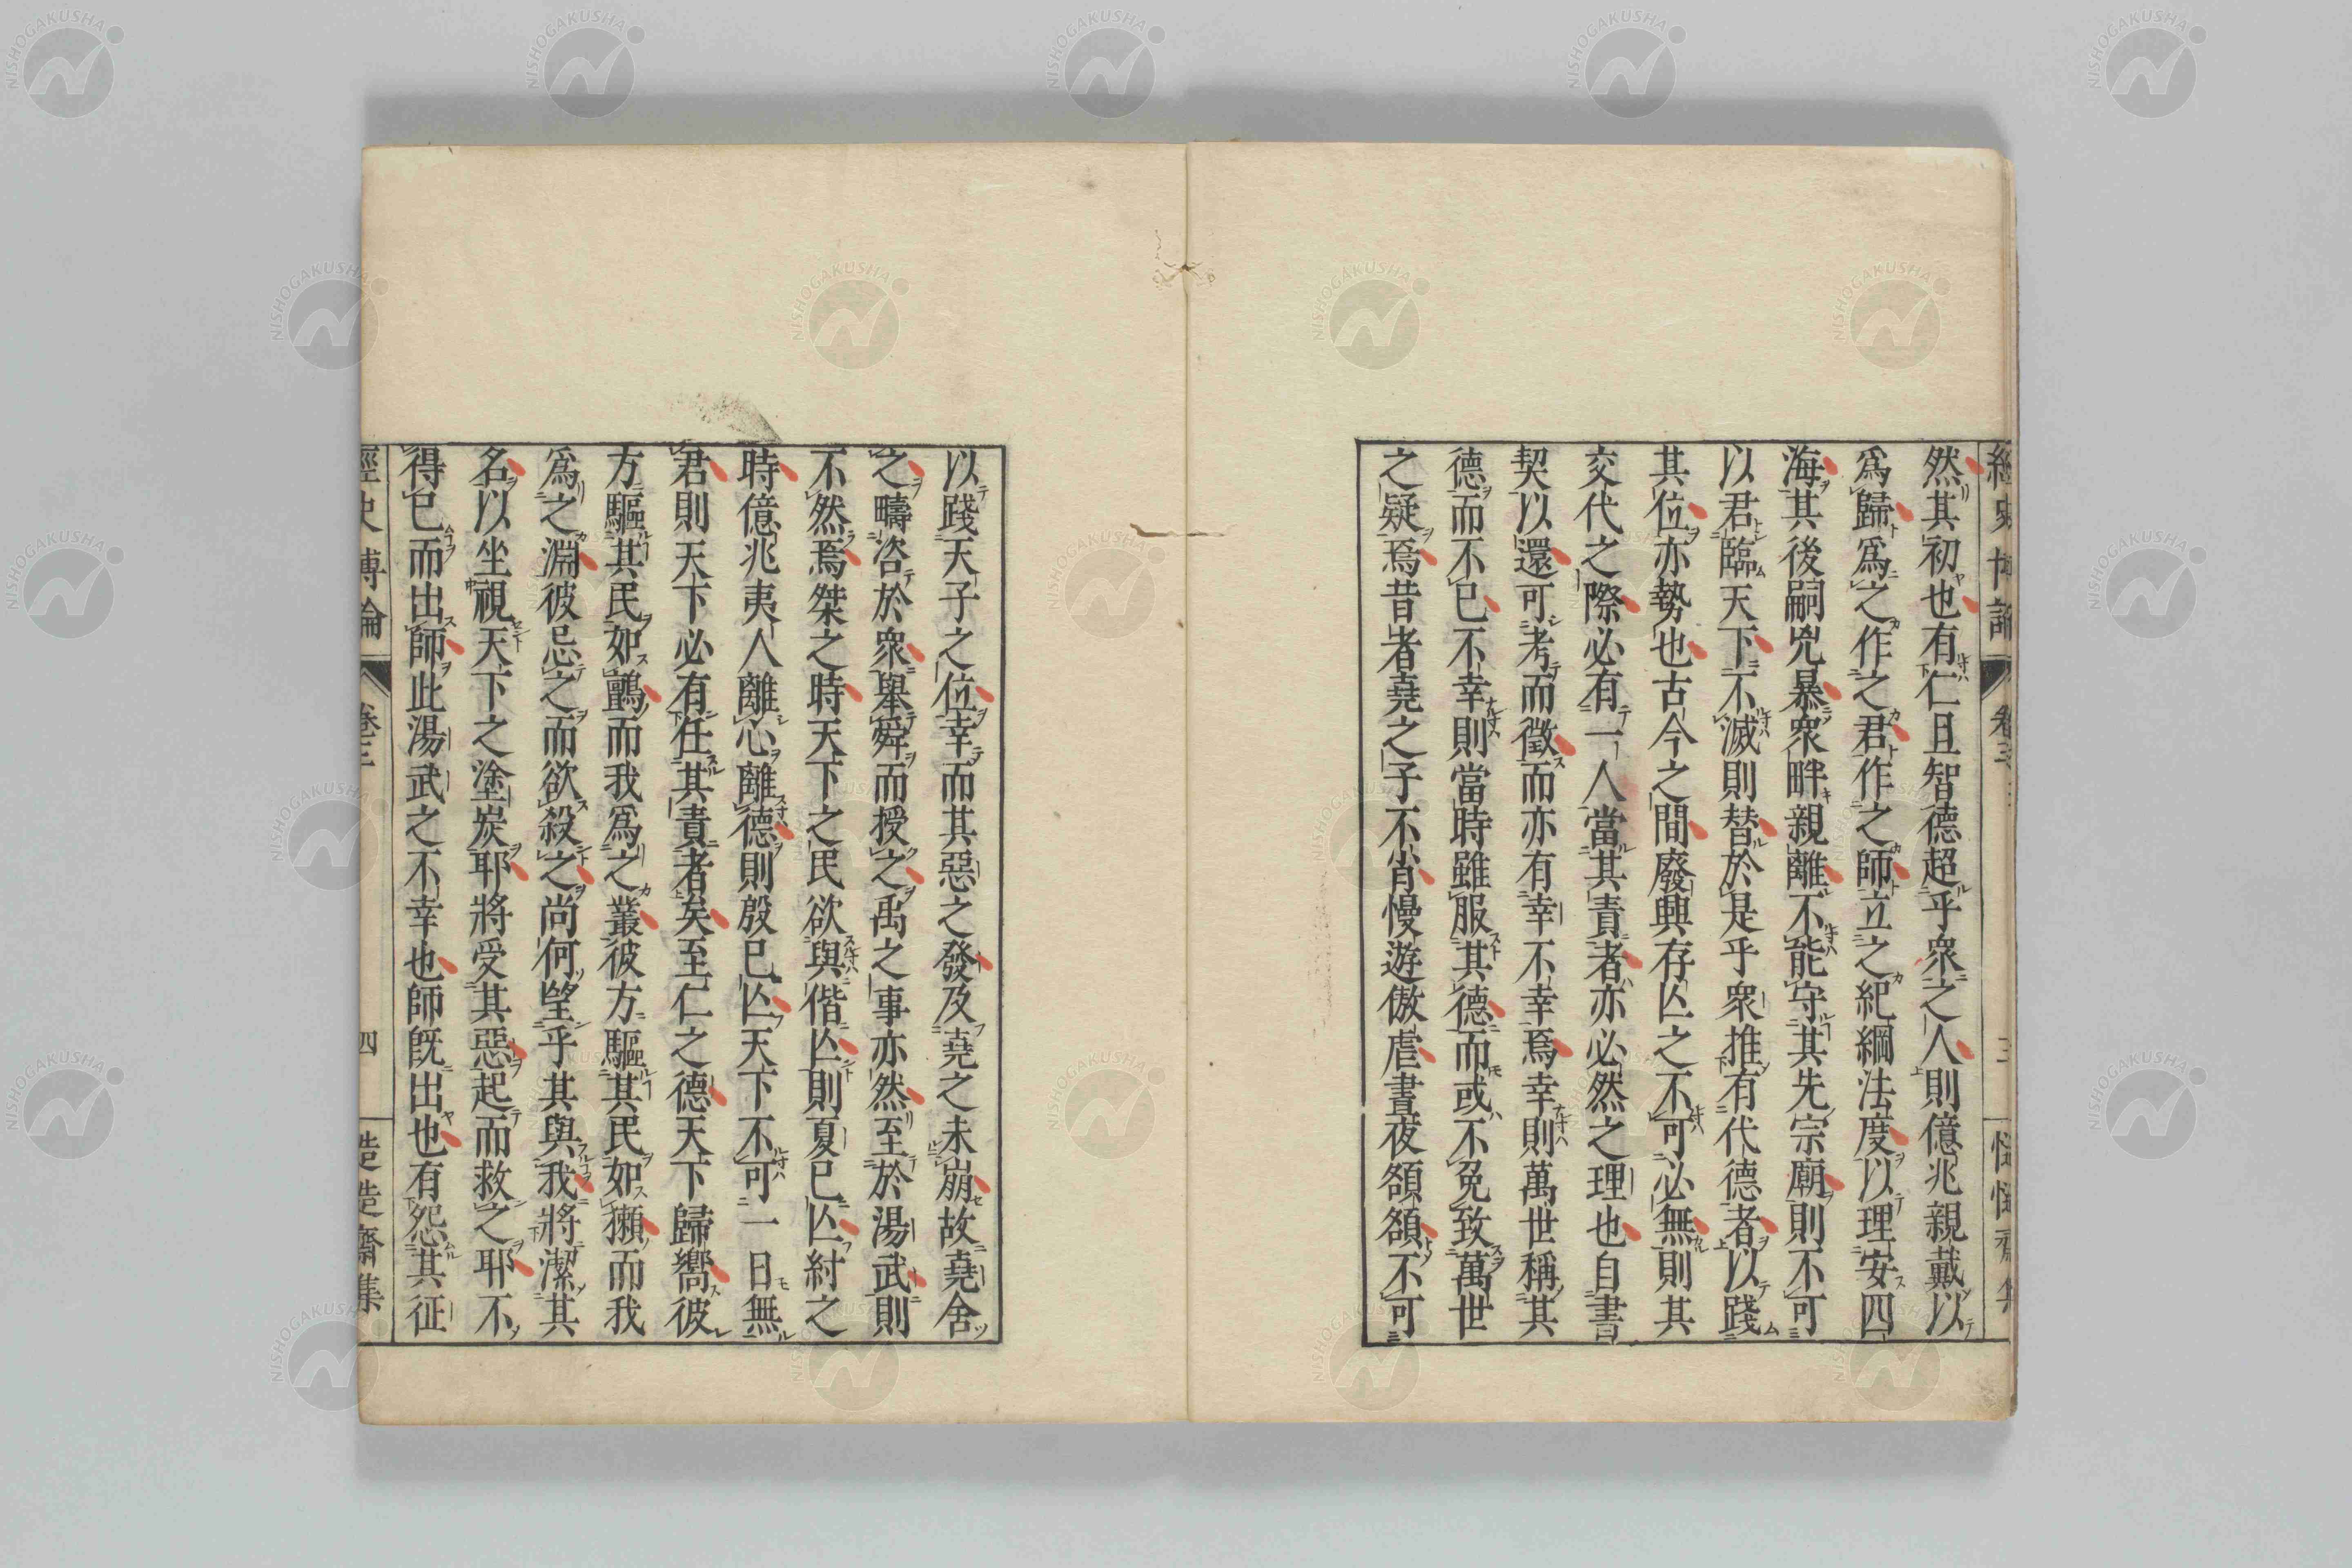 經史博論
卷三
三
然其初也有仁且智德超乎衆之人則億兆親戴以
爲歸爲之作之君作之師立之紀綱法度以理安四
海其後嗣兇暴衆畔親離不能守其先宗廟則不可
以君臨天下不滅則替於是乎衆推有代德者以踐
其位亦勢也古今之間廢興存亾之不可必無則其
交代之際必有一人當其責者亦必然之理也自書
契以還可考而徵而亦有幸不幸焉幸則萬世稱其
德而不已不幸則當時雖服其德而或不免致萬世
之疑焉昔者堯之子不肖慢遊傲虐晝夜頟頟不可
以踐天子之位幸而其惡之發及堯之未崩故堯舍
之疇咨於衆舉舜而授之禹之事亦然至於湯武則
不然焉桀之時天下之民欲與偕亾則夏已亾紂之
時億兆夷人離心離德則殷已亾天下不可一日無
君則天下必有任其責者矣至仁之德天下歸嚮彼
方驅其民如鸇而我爲之叢彼方驅其民如獺而我
爲之淵彼忌之而欲殺之尚何望乎其與我將潔其
名以坐視天下之塗炭耶將受其惡起而救之耶不
得已而出師此湯武之不幸也師旣出也有怨其征
經史博論
卷三
四
造造齋集
NISHOGAKUSHA